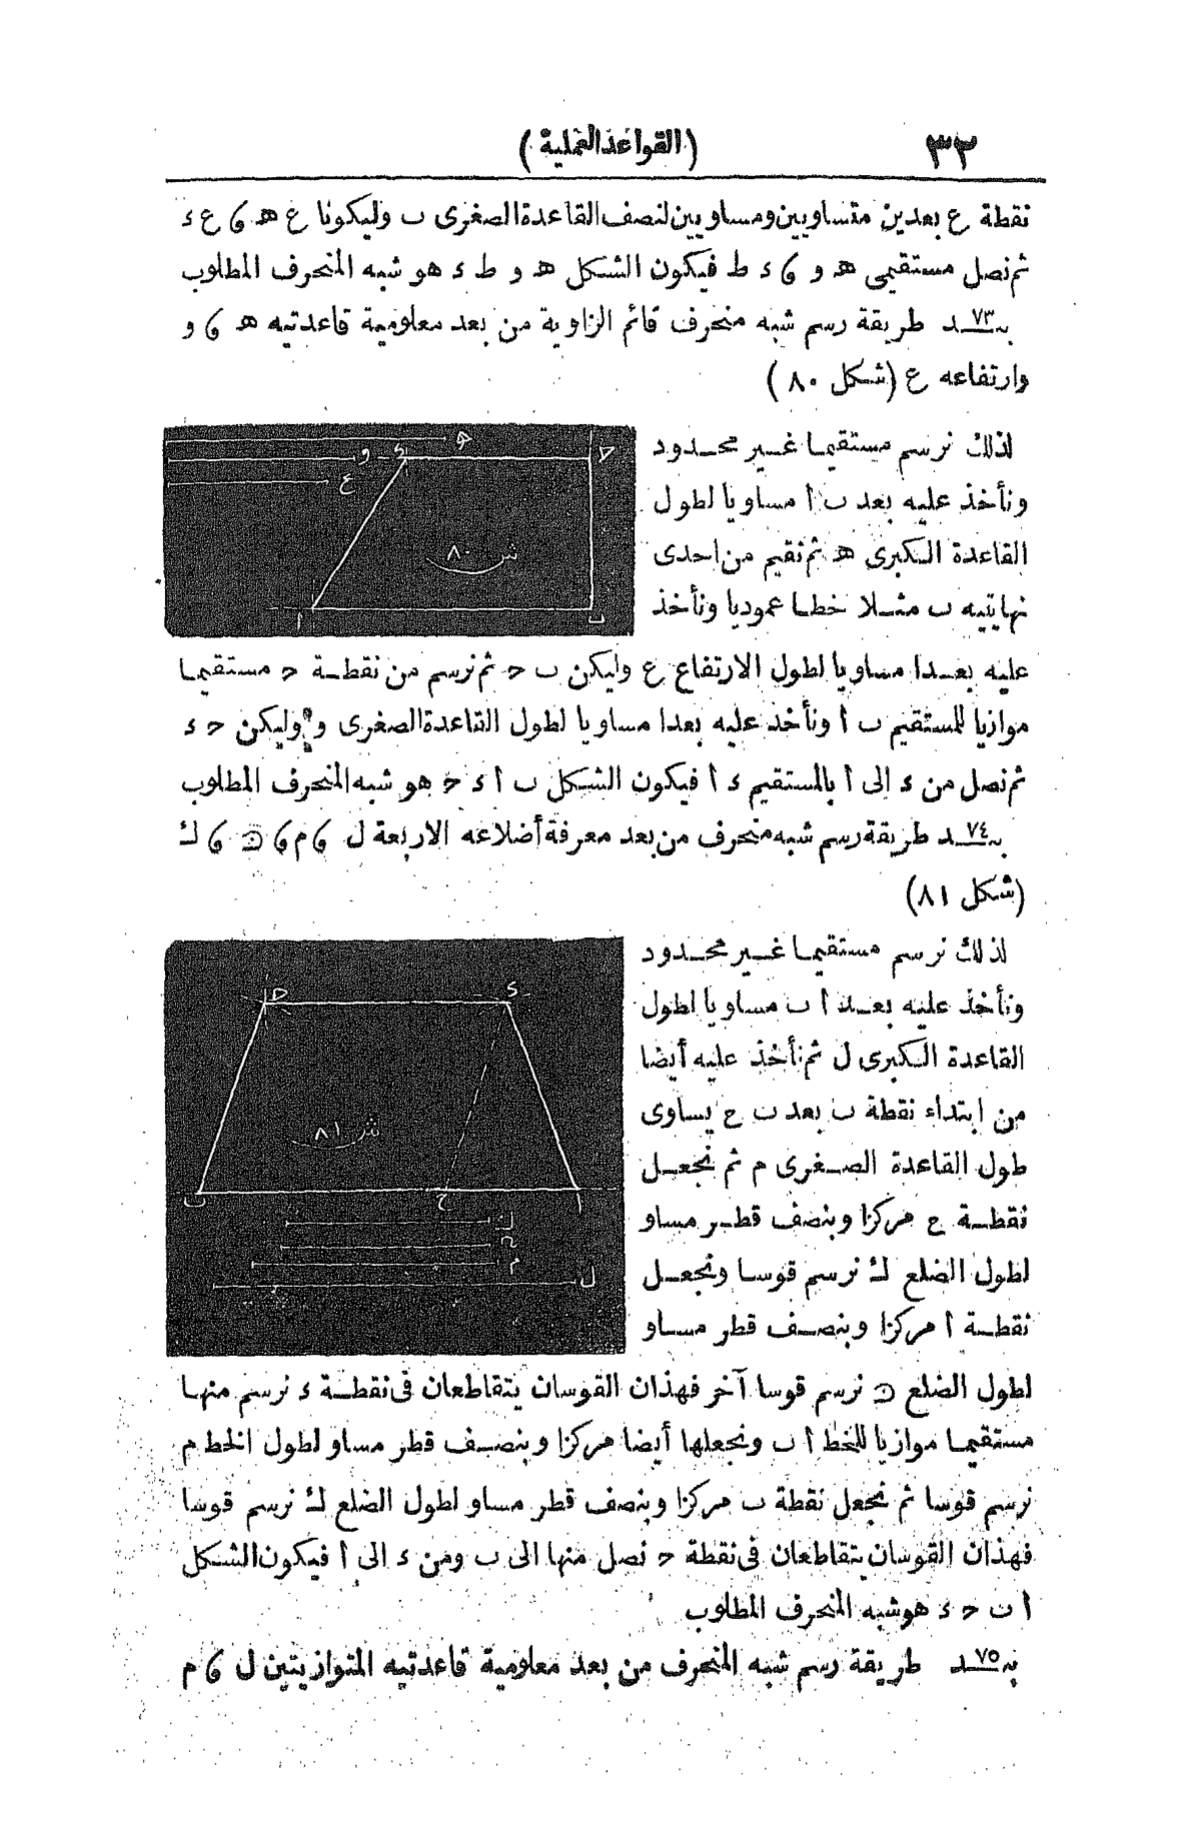 ٣٢
(القواعد العملية)
نقطة ع بعدين متساويين ومساويين لنصف القاعدة الصغرى ب وليكونا ع هـ و ع ء
ثم نصل مستقيمى هـ و و ء ط فيكون الشكل هـ و ط ء هو شبه المنحرف المطلوب
بـ٧٣ـد طريقة رسم شبه منحرف قائم الزاوية من بعد معلومية قاعدتيه هـ و و
وارتفاعه ع (شكل ٨٠)
لذلك نرسم مستقيما غير محدود
ونأخذ عليه بعد ب أ مساويا لطول
القاعدة الكبرى هـ ثم نقيم من احدى
نهايتيه ب مثلا خطا عموديا ونأخذ
هـ
و
ع
ء
حـ
ش ٨٠
ا
ب
عليه بعدا مساويا لطول الارتفاع ع وليكن ب حـ ثم نرسم من نقطة حـ مستقيما
موازيا للمستقيم ب أ ونأخذ عليه بعدا مساويا لطول القاعدة الصغرى و وليكن حـ ء
ثم نصل من ء الى أ بالمستقيم ء أ فيكون الشكل ب أ ء حـ هو شبه المنحرف المطلوب
بـ٧٤ـد طريقة رسم شبه منحرف من بعد معرفة أضلاعه الاربعة ل و م و ن و ك
(شكل ٨١)
لذلك نرسم مستقيما غير محدود
ونأخذ عليه بعد أ ب مساويا لطول
القاعدة الكبرى ل ثم نأخذ عليه أيضا
من ابتداء نقطة ب بعد ب ع يساوى
طول القاعدة الصغرى م ثم نجعل
نقطة ع مركزا وبنصف قطر مساو
لطول الضلع ك نرسم قوسا ونجعل
نقطة أ مركزا وبنصف قطر مساو
حـ
ء
ش ٨١
ب
ع
ا
ك
ن
م
ل
لطول الضلع ن نرسم قوسا آخر فهذان القوسان يتقاطعان فى نقطة ء نرسم منها
مستقيما موازيا للخط أ ب ونجعلها أيضا مركزا وبنصف قطر مساو لطول الخط م
نرسم قوسا ثم نجعل نقطة ب مركزا وبنصف قطر مساو لطول الضلع ك نرسم قوسا
فهذان القوسان يتقاطعان فى نقطة حـ نصل منها الى ب ومن ء الى أ فيكون الشكل
أ ب حـ ء هو شبه المنحرف المطلوب
بـ٧٥ـد طريقة رسم شبه المنحرف من بعد معلومية قاعدتيه المتوازيتين ل و م